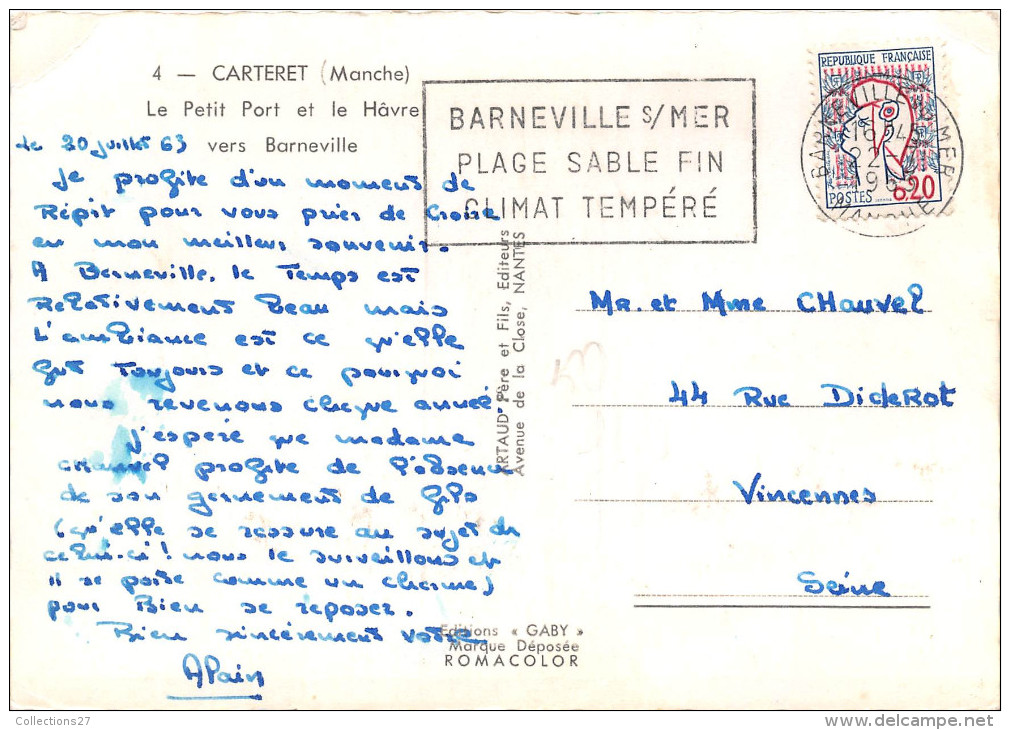 4 — CARTERET (Manche)
Le Petit Port et le Hâvre
vers Barneville
le 20 juillet 63
Je profite d'un moment de
Répit pour vous prier de Croire
en mon meilleur souvenir.
A Barneville, le Temps est
Relativement beau mais
L'ambiance est ce qu'elle
fut Toujours et ce pourquoi
nous revenons chaque année.
J'espère que madame
chauvel profite de l'absence
de son garnement de fils
(qu'elle se rassure au sujet de
celui-ci ! nous le surveillons et
il se porte comme un charme)
pour Bien se reposer.
Bien sincèrement votre
Alain
BARNEVILLE S/MER
PLAGE SABLE FIN
CLIMAT TEMPÉRÉ
REPUBLIQUE FRANÇAISE
POSTES 0,20
BARNEVILLE S MER
16 H45
22
MANCHE
ARTAUD Père et Fils, Editeurs
Avenue de la Close, NANTES
MR. et Mme CHauvel
44 Rue DideRot
Vincennes
Seine
Editions « GABY »
Marque Déposée
ROMACOLOR
Collections27
delcampe.net